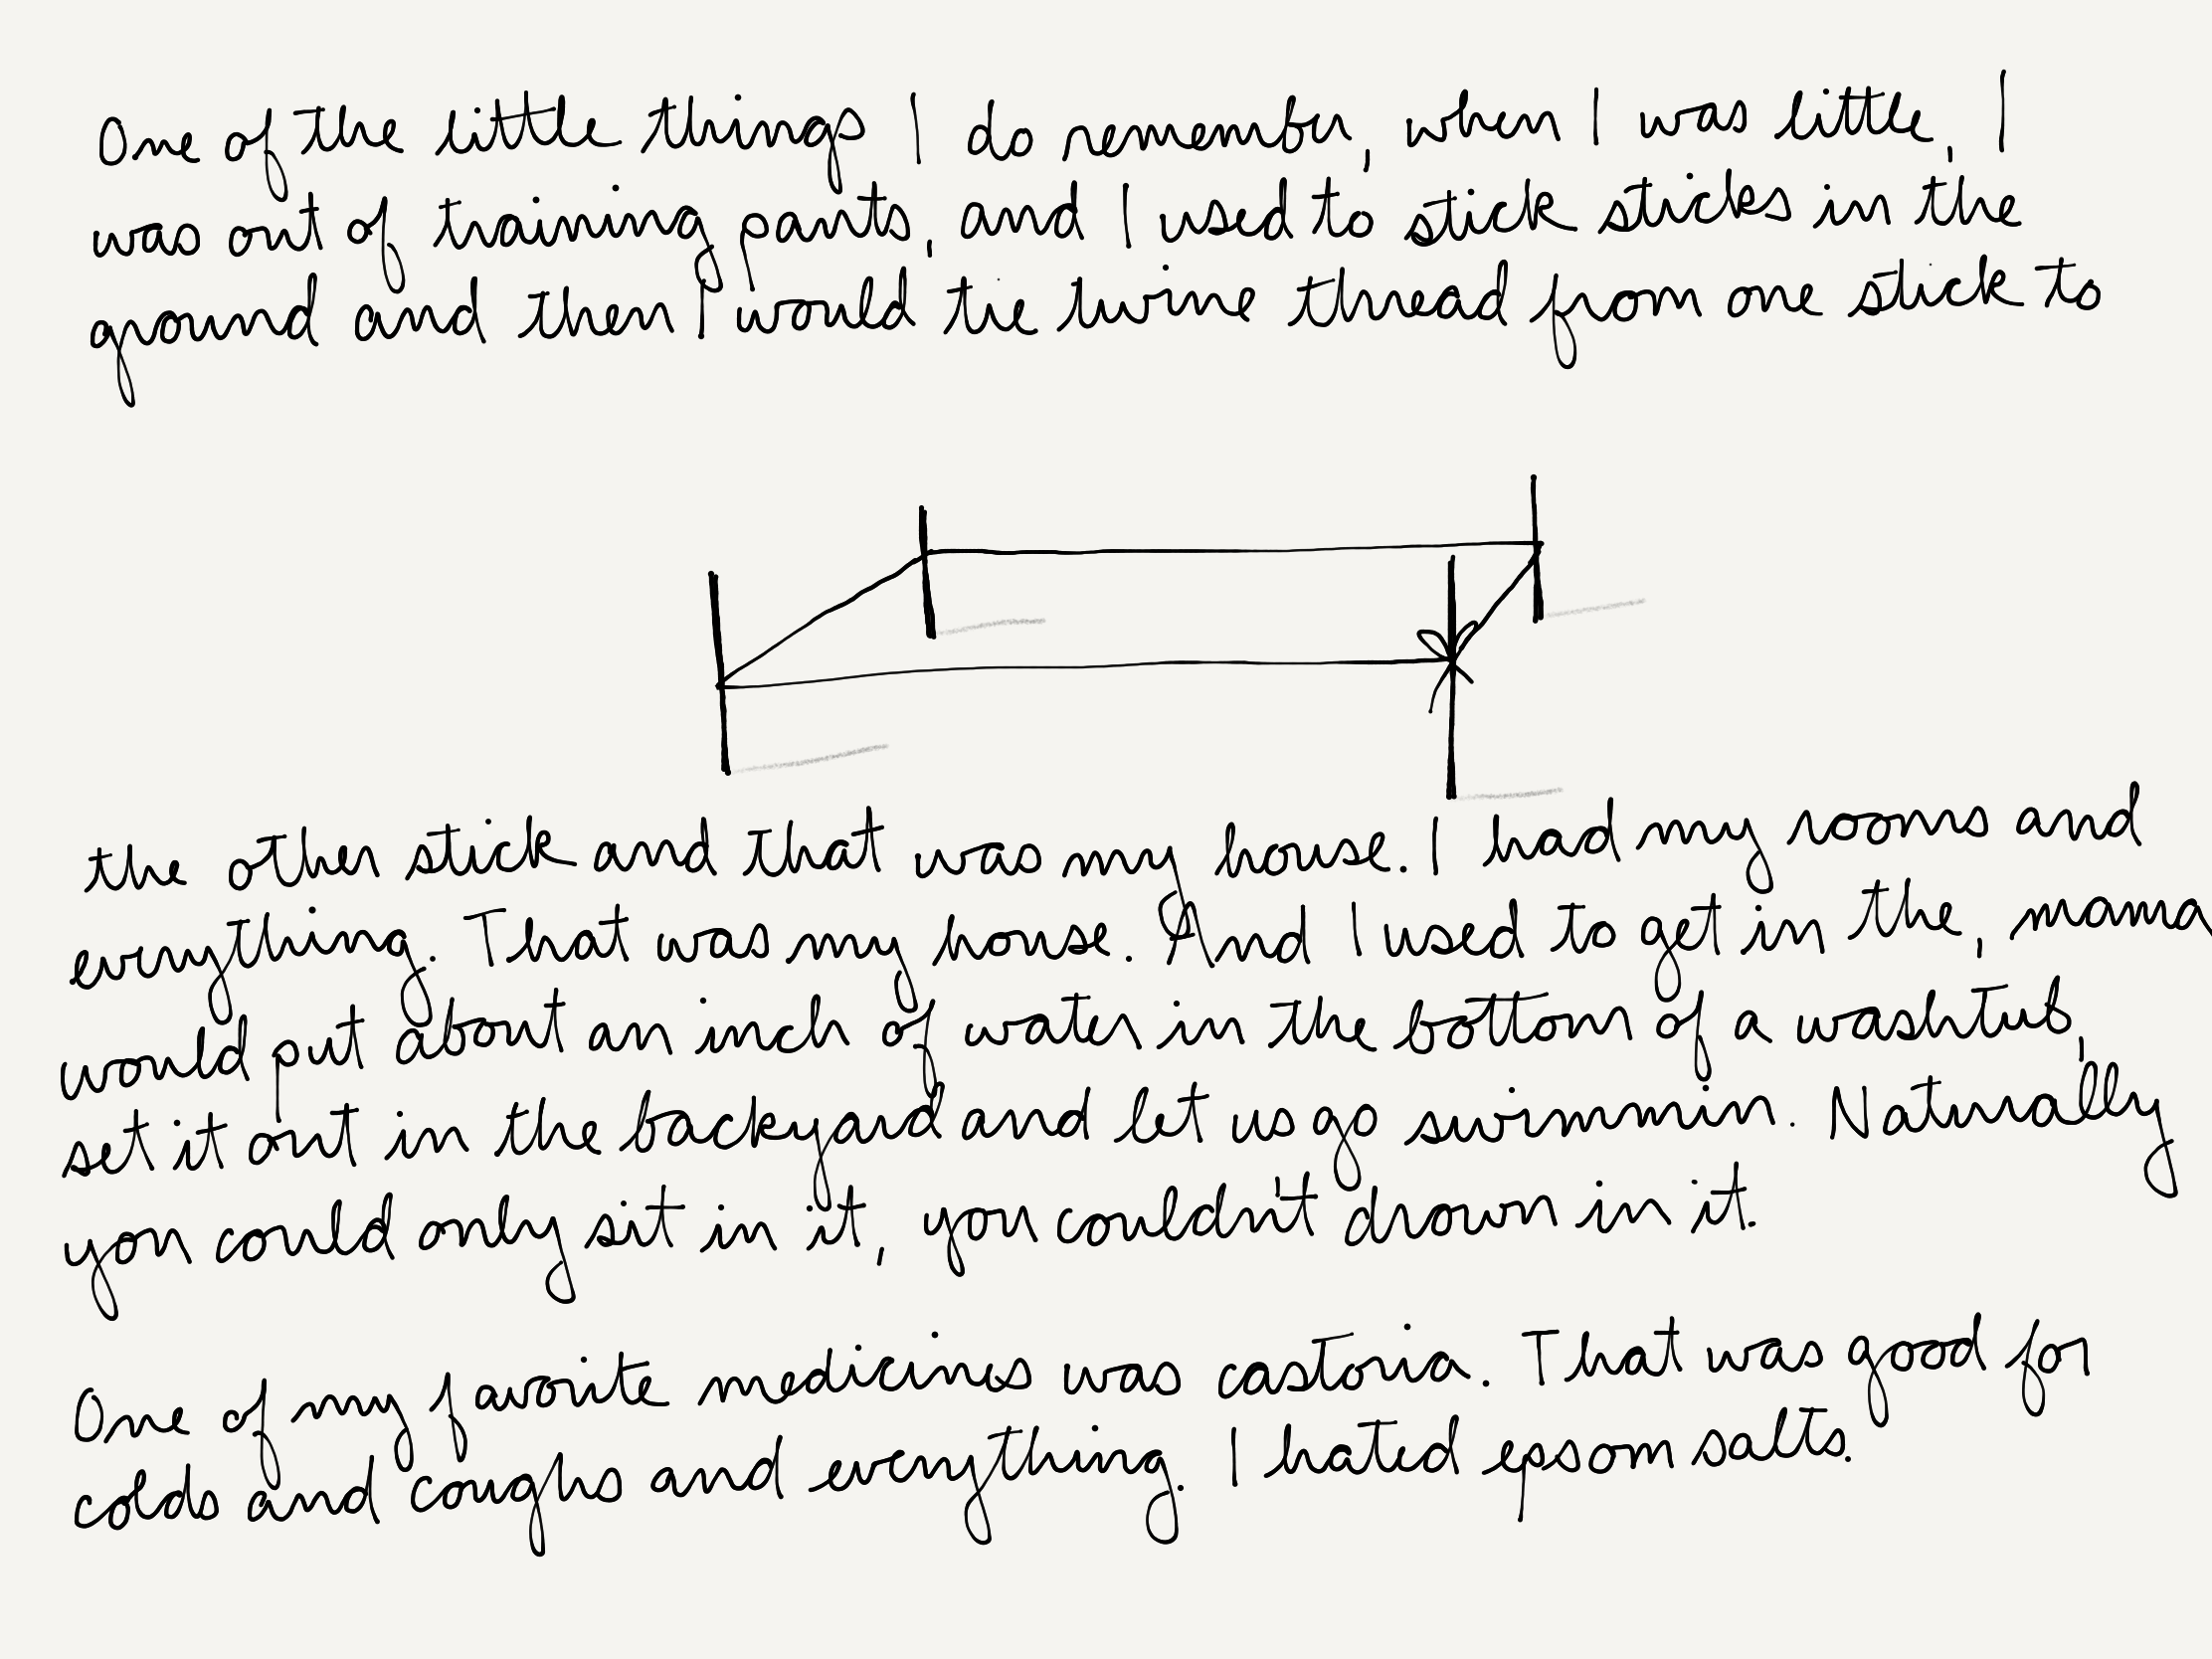 One of the little things I do remember, when I was little, I
was out of training pants, and I used to stick sticks in the
ground and then I would tie twine thread from one stick to
the other stick and that was my house. I had my rooms and
everything. That was my house. And I used to get in the, mama
would put about an inch of water in the bottom of a washtub,
set it out in the backyard and let us go swimmin. Naturally
you could only sit in it, you couldn't drown in it.
One of my favorite medicines was castoria. That was good for
colds and coughs and everything. I hated epsom salts.